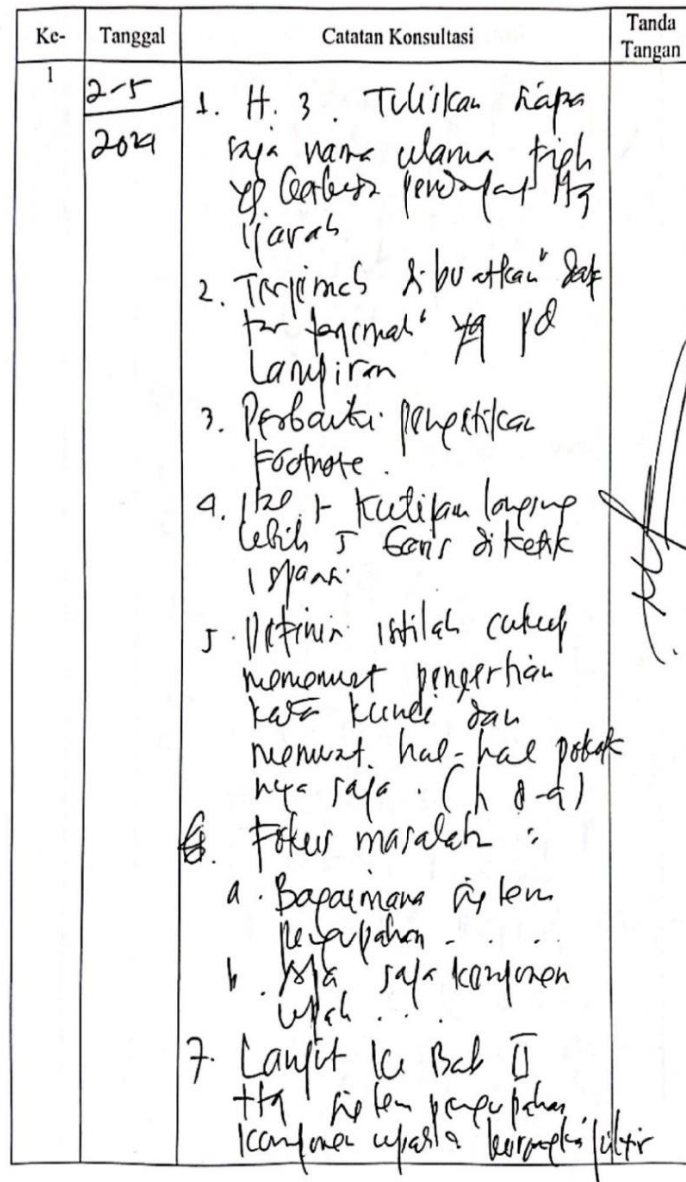 Ke- Tanggal Catatan Konsultasi Tanda Tangan
1
2-5
2024
1. H. 3. Tuliskan siapa
saja nama ulama fiqh
yg berbeda pendapat ttg
ijarah
2. Terjemah dibuatkan "daf
tar terjemah" yg pd
Lampiran
3. Perbaiki pengetikan
Footnote.
4. Kutipan langsung
lebih 5 baris diketik
1 spasi.
5. Definisi istilah cukup
memuat pengertian
kata kunci dan
memuat hal-hal pokok
nya saja. (h 8-9)
6. Fokus masalah :
a. Bagaimana sistem
pengupahan - . . .
b. Apa saja komponen
upah . . .
7. Lanjut ke Bab II
ttg sistem pengupahan
komponen upah &